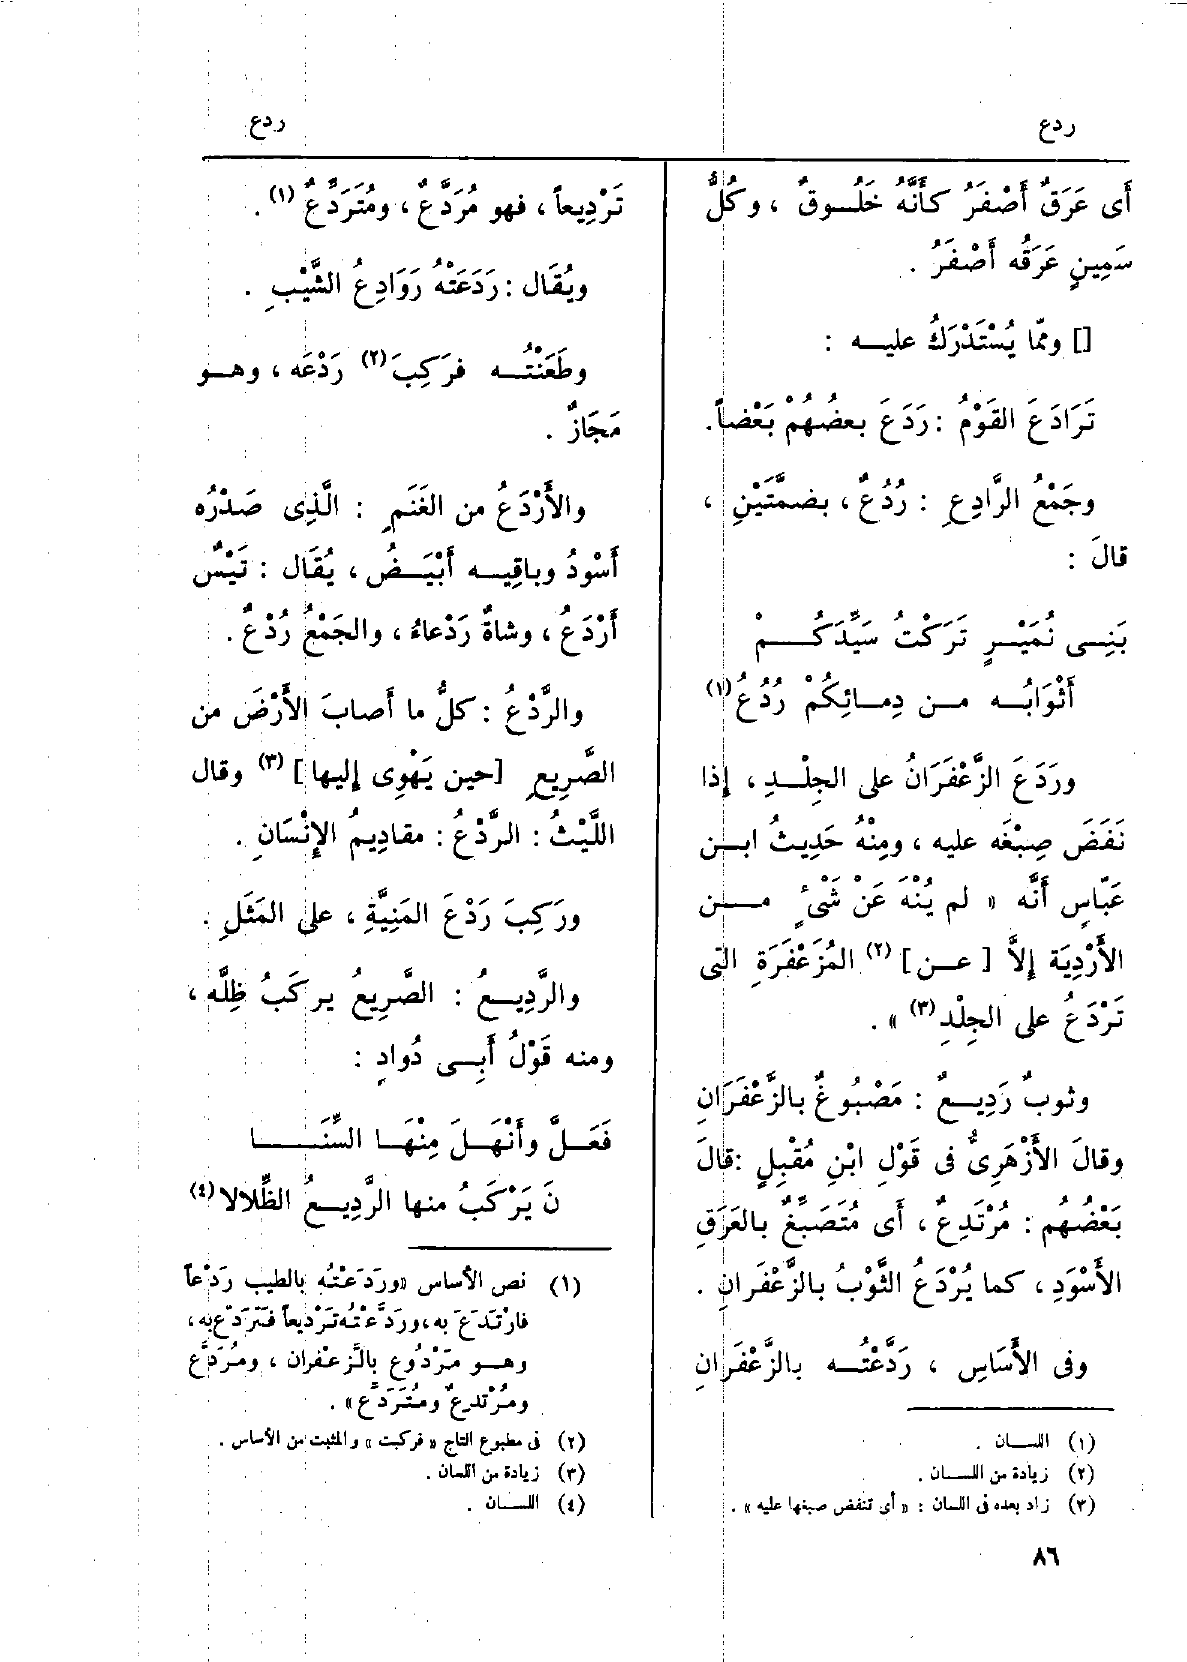 ردع
ردع
أَى عَرَقٌ أَصْفَرُ كأَنَّهُ خَلُــوقٌ ، وكُلُّ
سَمِينٍ عَرَقُه أَصْفَرُ .
[] وممّا يُسْتَدْرَكُ عليــه :
تَرَادَعَ القَوْمُ : رَدَعَ بعضُهُمْ بَعْضاً.
وجَمْعُ الرَّادِعِ : رُدُعٌ ، بضمَّتَيْنِ ،
قالَ :
بَنِــى نُمَيْــرٍ تَرَكْتُ سَيِّدَكُــــمْ
أَثْوَابُــه مــن دِمــائِكُمْ رُدُعُ (١)
ورَدَعَ الزَّعْفَرَانُ على الجِلْــدِ ، إِذا
نَفَضَ صِبْغَه عليه ، ومِنْهُ حَدِيثُ ابــن
عَبّاسٍ أَنَّه « لم يُنْهَ عَنْ شَىْءٍ مــــن
الأَرْدِيَة إِلاَّ [ عــن ] (٢) المُزَعْفَرَةِ التى
تَرْدَعُ على الجِلْدِ (٣) » .
وثوبٌ رَدِيــعٌ : مَصْبُوغٌ بالزَّعْفَرَانِ
وقالَ الأَزْهَرِىُّ فى قَوْلِ ابْنِ مُقْبِلٍ :قالَ
بَعْضُهُم : مُرْتَدِعٌ ، أَى مُتَصَبِّغٌ بالعَرَقِ
الأَسْوَدِ ، كما يُرْدَعُ الثَّوْبُ بالزَّعْفَرانِ .
وفى الأَسَاسِ ، رَدَّعْتُــه بالزَّعْفَرَانِ
(١) اللســان .
(٢) زيادة من اللســان .
(٣) زاد بعده فى اللسان : « أى تنفض صبغها عليه » .
٨٦
تَرْدِيعاً ، فهو مُرَدَّعٌ ، ومُتَرَدِّعٌ (١) .
ويُقَال : رَدَعَتْهُ رَوَادِعُ الشَّيْبِ .
وطَعَنْتُــه فرَكِبَ (٢) رَدْعَه ، وهــو
مَجَازٌ .
والأَرْدَعُ من الغَنَمِ : الَّذِى صَدْرُه
أَسْودُ وباقِيــه أَبْيَــضُ ، يُقَال : تَيْسٌ
أَرْدَعُ ، وشاةٌ رَدْعاءُ ، والجَمْعُ رُدْعٌ .
والرَّدْعُ : كلُّ ما أَصابَ الأَرْضَ من
الصَّرِيعِ [حين يَهْوِى إِليها ] (٣) وقال
اللَّيْثُ : الرَّدْعُ : مقادِيمُ الإِنْسَانِ .
ورَكِبَ رَدْعَ المَنِيَّةِ ، على المَثَلِ .
والرَّدِيــعُ : الصَّرِيعُ يركَبُ ظِلَّه ،
ومنه قَوْلُ أَبِــى دُوادٍ :
فَعَــلَّ وأَنْهَــلَ مِنْهَــا السِّنَــــا
نَ يَرْكَبُ منها الرَّدِيــعُ الظِّلالا (٤)
(١) نص الأساس «ورَدَعْتُه بالطيب رَدْعاً
فارْتَدَعَ به،ورَدَّعْتُه تَرْديعاً فتَرَدَّع به ،
وهــو مَرْدُوع بالزعفران ، ومُرَدَّع
ومُرْتدِعٌ ومُتَرَدِّع» .
(٢) فى مطبوع التاج « فركبت » والمثبت من الأساس .
(٣) زيادة من اللسان .
(٤) اللســان .